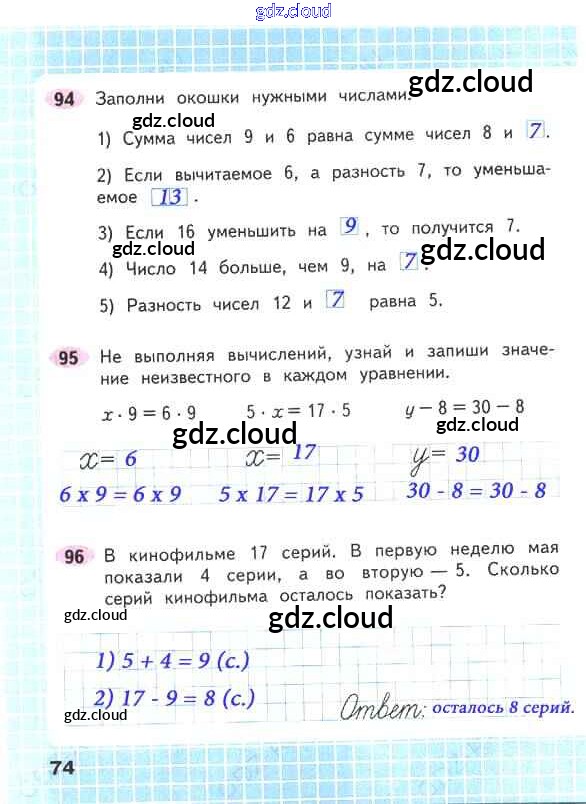 gdz.cloud
gdz.cloud
94 Заполни окошки нужными числами.
gdz.cloud
1) Сумма чисел 9 и 6 равна сумме чисел 8 и 7.
2) Если вычитаемое 6, а разность 7, то уменьша-
емое 13.
3) Если 16 уменьшить на 9, то получится 7.
gdz.cloud gdz.cloud
4) Число 14 больше, чем 9, на 7.
5) Разность чисел 12 и 7 равна 5.
95 Не выполняя вычислений, узнай и запиши значе-
ние неизвестного в каждом уравнении.
x · 9 = 6 · 9 5 · x = 17 · 5 y − 8 = 30 − 8
gdz.cloud
x = 6 x = 17 y = 30
gdz.cloud
6 x 9 = 6 x 9 5 x 17 = 17 x 5 30 - 8 = 30 - 8
96 В кинофильме 17 серий. В первую неделю мая
показали 4 серии, а во вторую — 5. Сколько
серий кинофильма осталось показать?
gdz.cloud gdz.cloud
1) 5 + 4 = 9 (с.)
gdz.cloud
2) 17 - 9 = 8 (с.)
gdz.cloud
Ответ: осталось 8 серий.
74